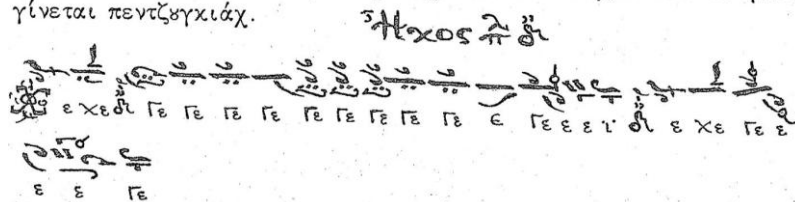 γίνεται πεντζȣγκιάχ.
Ἦχος λ π δι
ε χε δι Γε Γε Γε Γε Γε Γε Γε Γε Γε ε Γε ε ε ϊ δι ε χε Γε ε
ε ε Γε